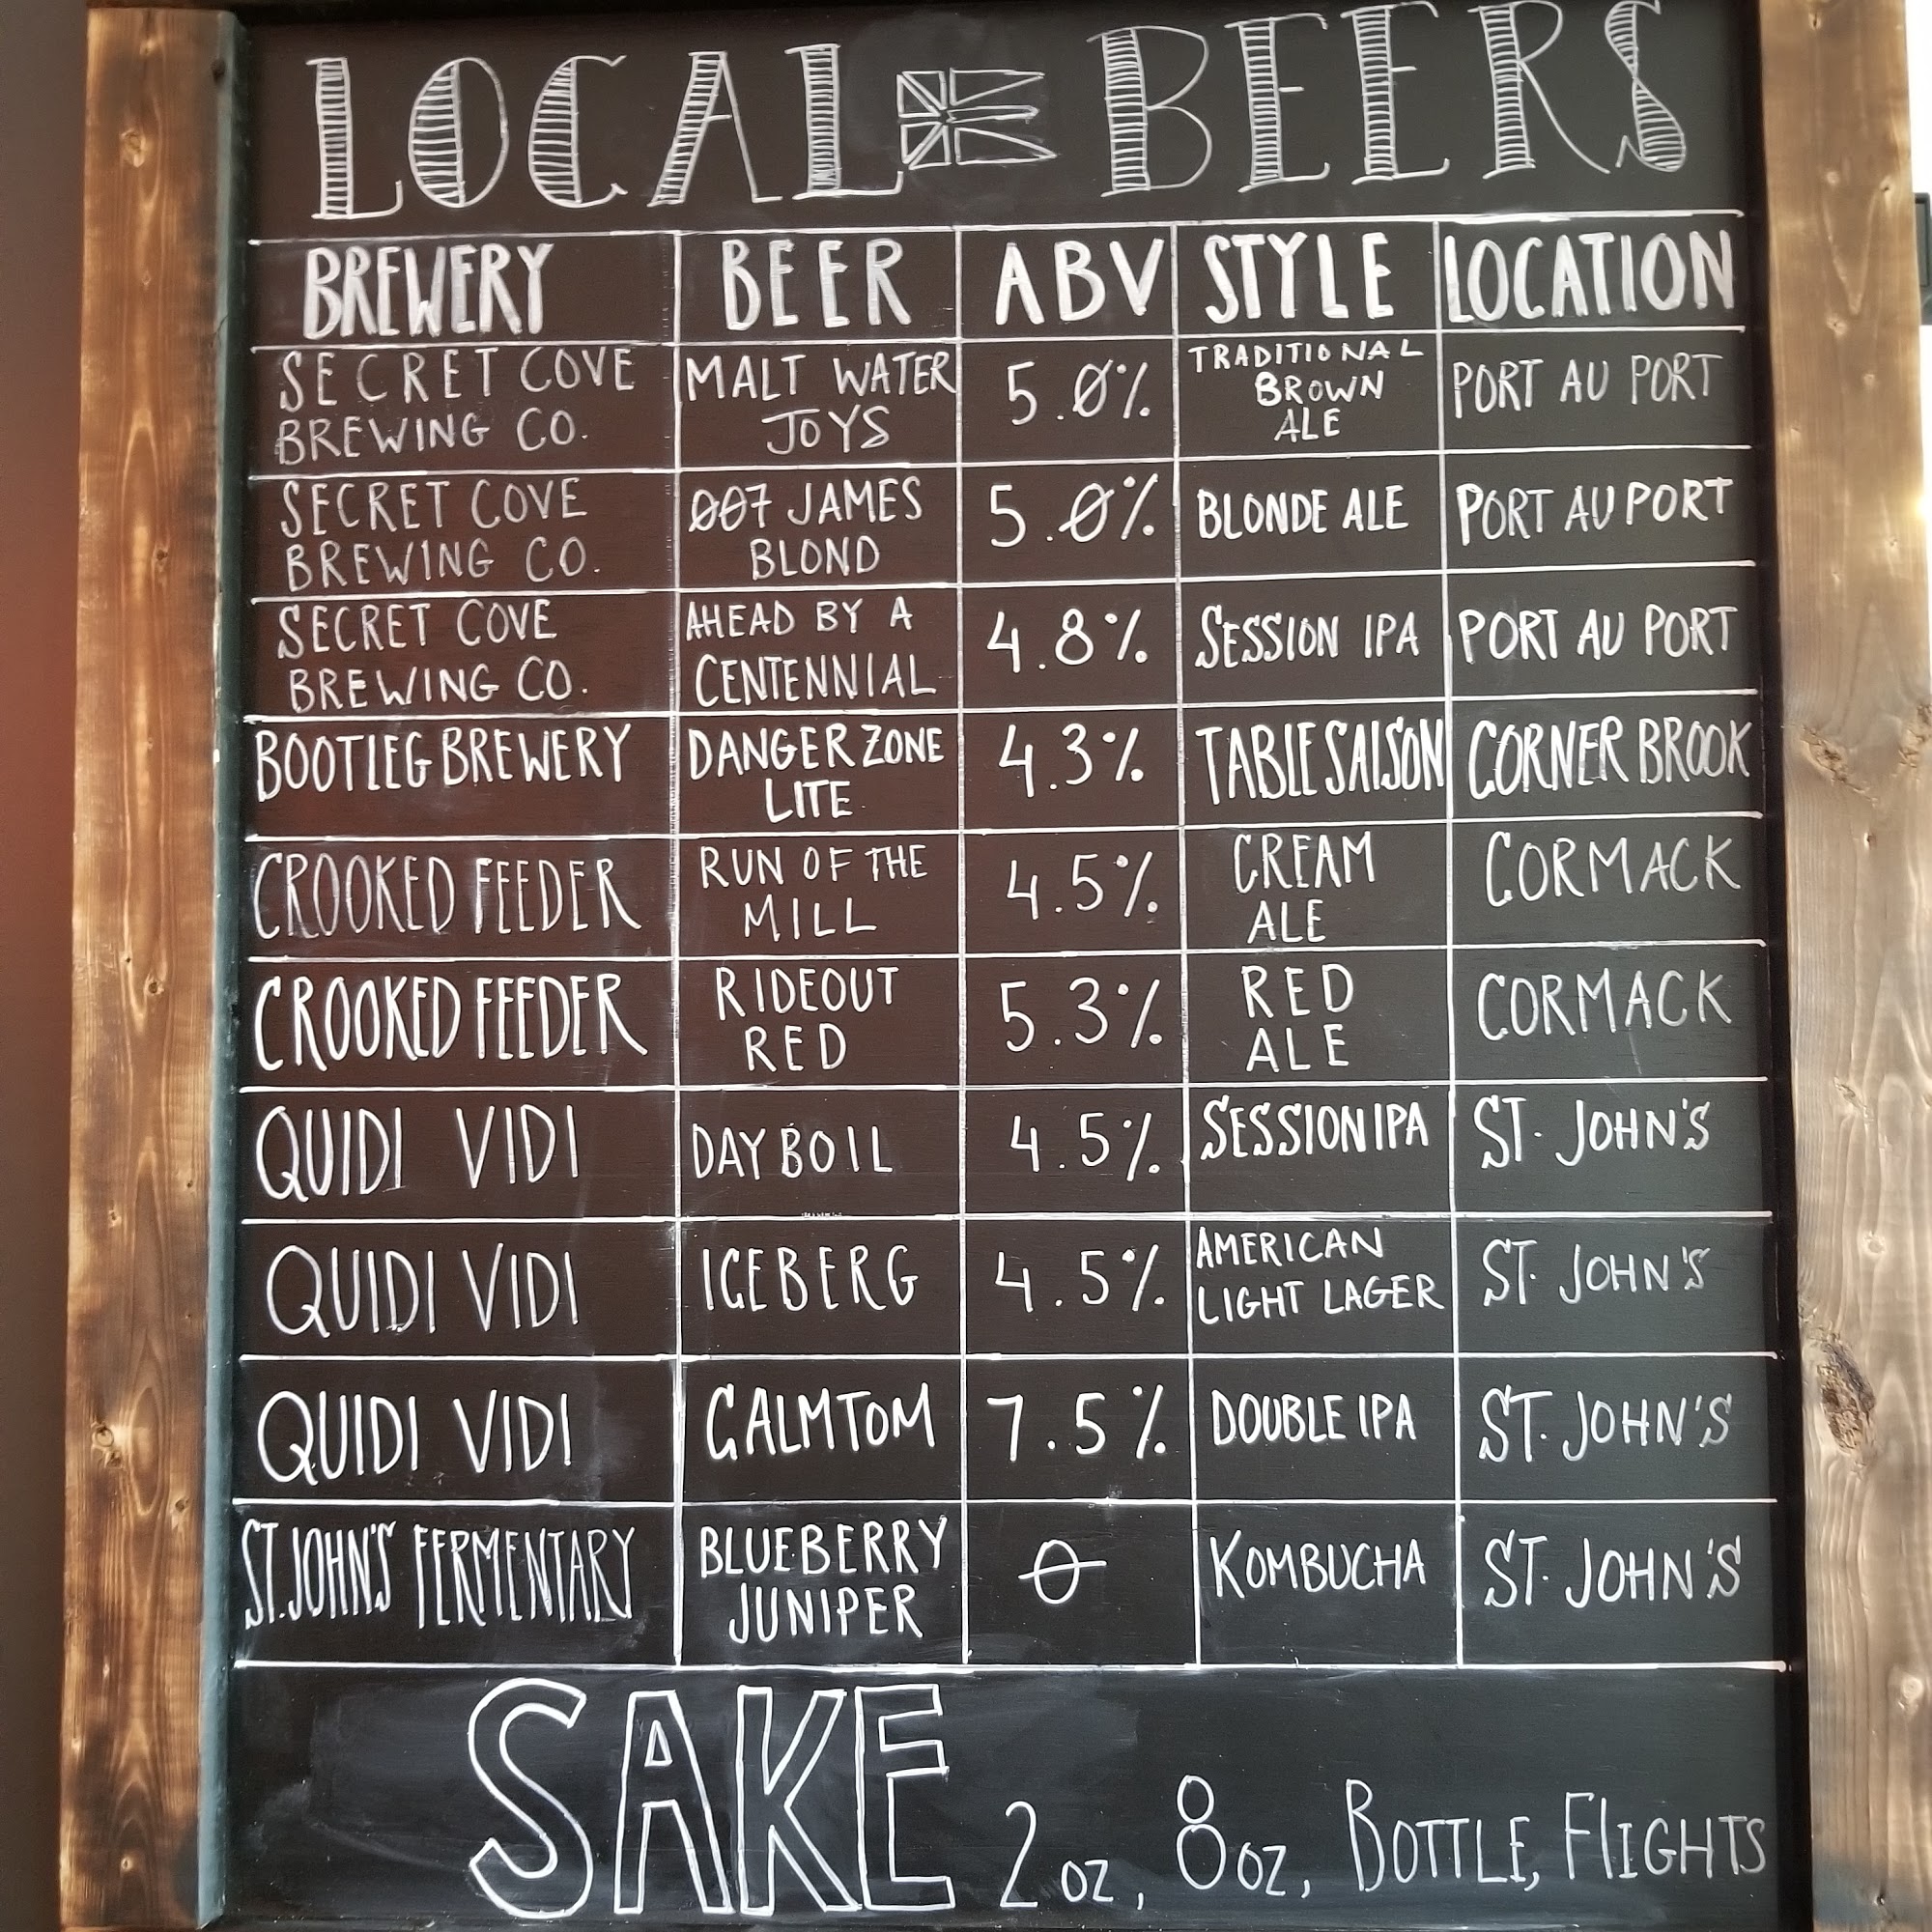 LOCAL BEERS
BREWERY BEER ABV STYLE LOCATION
SECRET COVE BREWING CO. MALT WATER JOYS 5.0% TRADITIONAL BROWN ALE PORT AU PORT
SECRET COVE BREWING CO. 007 JAMES BLOND 5.0% BLONDE ALE PORT AU PORT
SECRET COVE BREWING CO. AHEAD BY A CENTENNIAL 4.8% SESSION IPA PORT AU PORT
BOOTLEG BREWERY DANGER ZONE LITE 4.3% TABLE SAISON CORNER BROOK
CROOKED FEEDER RUN OF THE MILL 4.5% CREAM ALE CORMACK
CROOKED FEEDER RIDEOUT RED 5.3% RED ALE CORMACK
QUIDI VIDI DAYBOIL 4.5% SESSION IPA ST. JOHN'S
QUIDI VIDI ICEBERG 4.5% AMERICAN LIGHT LAGER ST. JOHN'S
QUIDI VIDI CALM TOM 7.5% DOUBLE IPA ST. JOHN'S
ST. JOHN'S FERMENTARY BLUEBERRY JUNIPER 0 KOMBUCHA ST. JOHN'S
SAKE 2 oz, 8 oz, BOTTLE, FLIGHTS